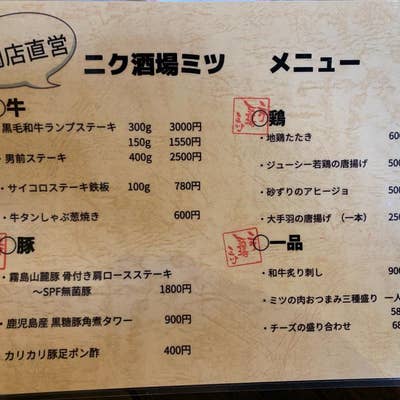 店直営
ニク酒場ミツ メニュー
◯牛
・黒毛和牛ランプステーキ 300g 3000円
150g 1550円
・男前ステーキ 400g 2500円
・サイコロステーキ鉄板 100g 780円
・牛タンしゃぶ葱焼き 600円
◯豚
・霧島山麓豚 骨付き肩ロースステーキ
〜SPF無菌豚 1800円
・鹿児島産 黒糖豚角煮タワー 900円
・カリカリ豚足ポン酢 400円
◯鶏
・地鶏たたき 60
・ジューシー若鶏の唐揚げ 500
・砂ずりのアヒージョ 500
・大手羽の唐揚げ (一本) 250
◯一品
・和牛炙り刺し 900
・ミツの肉おつまみ三種盛り 一人
58
・チーズの盛り合わせ 68